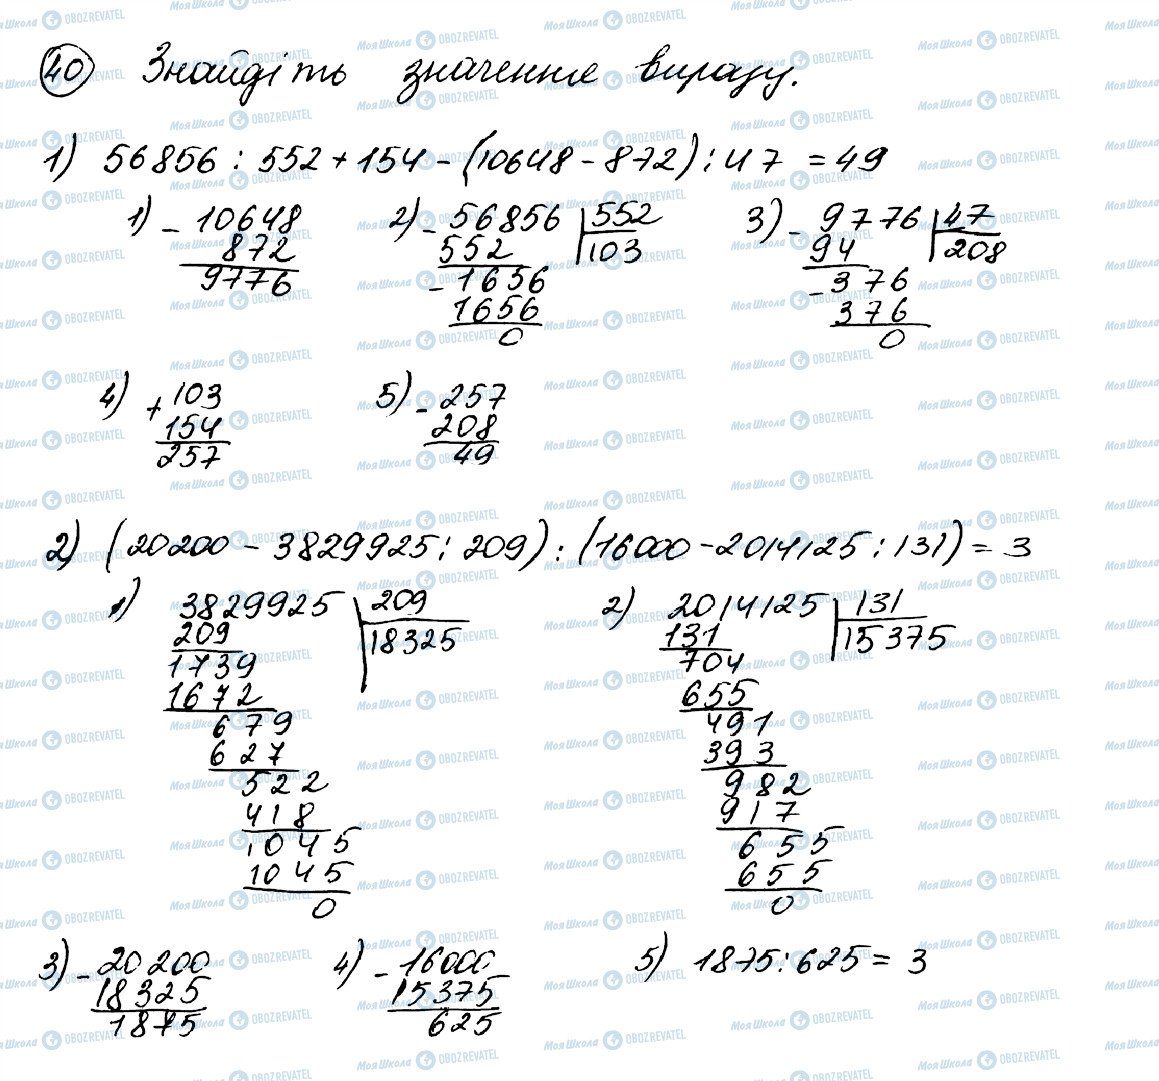 40 Знайдіть значення виразу.
1) 56856 : 552 + 154 - (10648 - 872) : 47 = 49
1) - 10648
872
9776
2) - 56856 | 552
552 | 103
- 1656
1656
0
3) - 9776 | 47
94 | 208
- 376
376
0
4) + 103
154
257
5) - 257
208
49
2) (20200 - 3829925 : 209) : (16000 - 2014125 : 131) = 3
1) 3829925 | 209
209 | 18325
1739
1672
679
627
522
418
1045
1045
0
2) 2014125 | 131
131 | 15375
704
655
491
393
982
917
655
655
0
3) - 20200
18325
1875
4) - 16000
15375
625
5) 1875 : 625 = 3